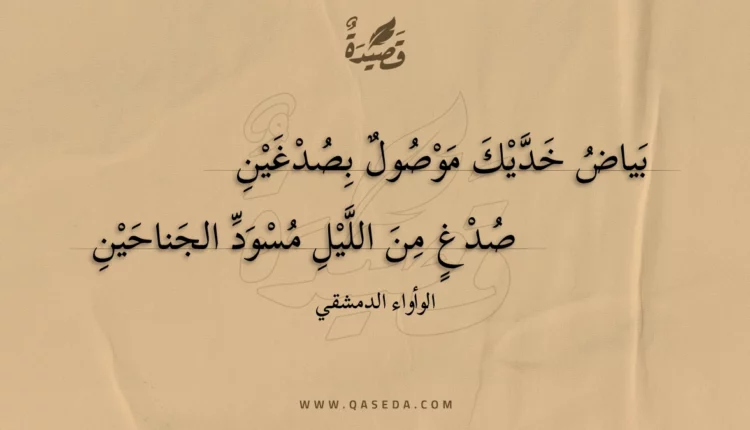 قَصِيْدَةٌ
بَياضُ خَدَّيْكَ مَوْصُولٌ بِصُدْغَيْنِ
صُدْغٍ مِنَ اللَّيْلِ مُسْوَدِّ الجَناحَيْنِ
الوأواء الدمشقي
WWW.QASEDA.COM